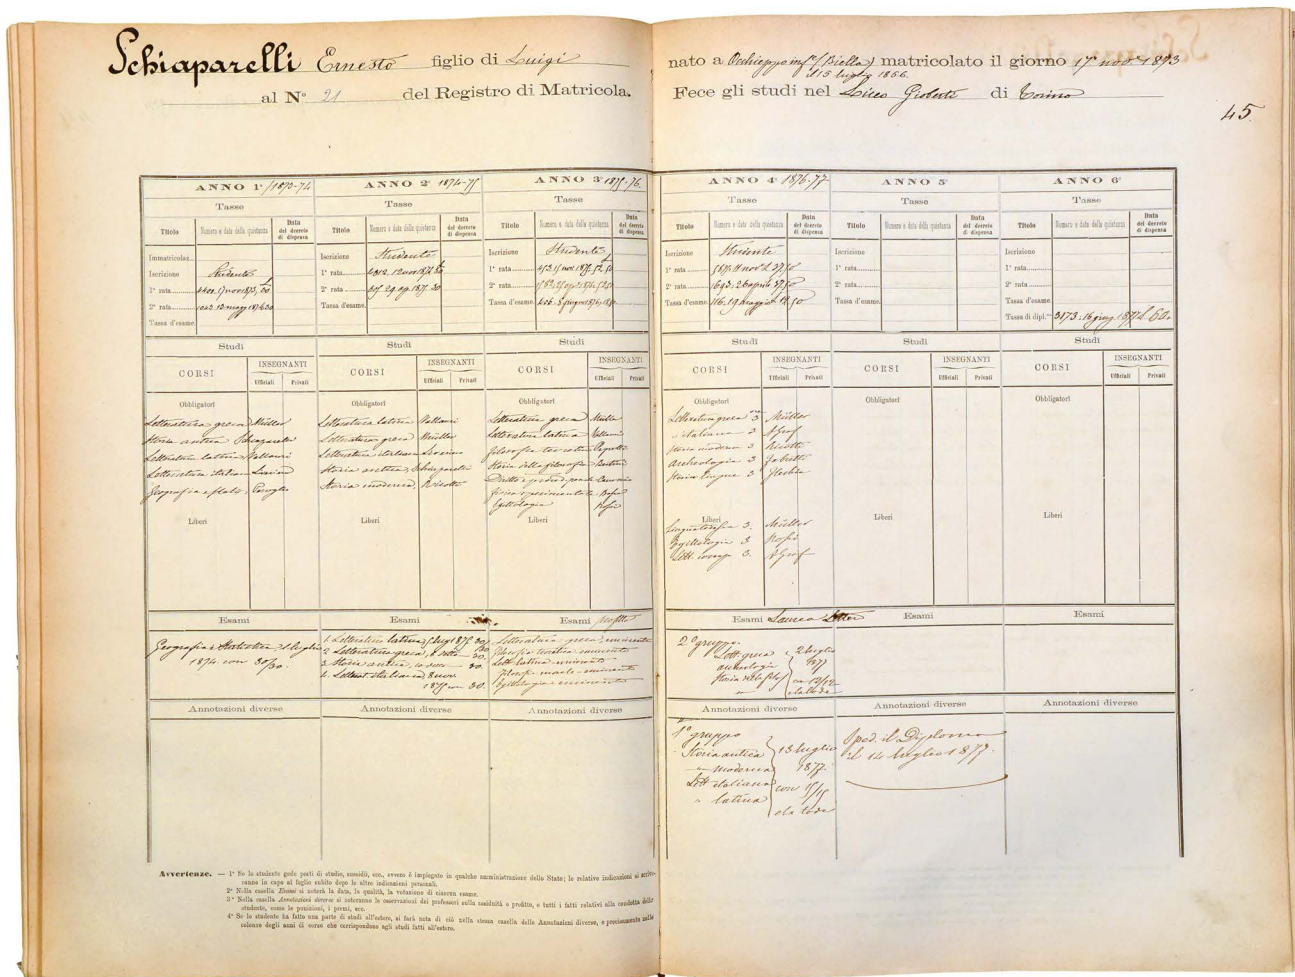 Schiaparelli Ernesto figlio di Luigi
nato a Occhieppo inf.re (Biella) matricolato il giorno 17 nov. 1873
il 15 luglio 1856.
al N° 21 del Registro di Matricola.
Fece gli studi nel Liceo Gioberti di Torino
45.
ANNO 1° 1873-74
Tasse
Titolo Numero e data della quietanza Data del decreto di dispensa
Immatricolaz.
Iscrizione Studente
1ª rata
2ª rata
Tassa d'esame
Studi
CORSI INSEGNANTI
Ufficiali Privati
Obbligatori
Letteratura greca Müller
Storia antica Schiaparelli
Letteratura latina Vallauri
Letteratura italiana
Geografia e Statis.
Liberi
Esami
Geografia e Statistica 1 luglio
1874 con 30/30.
Annotazioni diverse
ANNO 2° 1874-75
Tasse
Titolo Numero e data della quietanza Data del decreto di dispensa
Iscrizione Studente
1ª rata
2ª rata
Tassa d'esame
Studi
CORSI INSEGNANTI
Ufficiali Privati
Obbligatori
Letteratura latina Vallauri
Letteratura greca Müller
Letteratura italiana
Storia antica Schiaparelli
Storia moderna Ricotti
Liberi
Esami
1. Letteratura latina 30
2. Letteratura greca 30.
3. Storia antica 30.
4. Letterat. italiana
1875 con 30.
Annotazioni diverse
ANNO 3° 1875-76.
Tasse
Titolo Numero e data della quietanza Data del decreto di dispensa
Iscrizione Studente
1ª rata
2ª rata
Tassa d'esame
Studi
CORSI INSEGNANTI
Ufficiali Privati
Obbligatori
Letteratura greca Müller
Letteratura latina Vallauri
Filosofia teoretica
Storia della filosofia
Egittologia Rossi
Liberi
Esami
Letteratura greca eminente
Filosofia teoretica eminente
Lett. latina eminente
Filosof. morale eminente
Egittologia eminente
Annotazioni diverse
ANNO 4° 1876-77
Tasse
Titolo Numero e data della quietanza Data del decreto di dispensa
Iscrizione Studente
1ª rata
2ª rata
Tassa d'esame
Studi
CORSI INSEGNANTI
Ufficiali Privati
Obbligatori
Letteratura greca 3 Müller
" italiana 3 A Graf
Storia moderna 3 Ricotti
Archeologia 3 Fabretti
Storia lingue 3 Flechia
Liberi
3. Müller
Egittologia 3. Rossi
Lett. comp. 3. A Graf
Esami Laurea Lettere
2° gruppo.
Lett. greca 2 luglio
archeologia 1877
Storia della filos.
e la lode
Annotazioni diverse
1° gruppo
Storia antica 13 luglio
" moderna 1877.
Lett. italiana con
" latina
e la lode
ANNO 5°
Tasse
Titolo Numero e data della quietanza Data del decreto di dispensa
Iscrizione
1ª rata
2ª rata
Tassa d'esame
Studi
CORSI INSEGNANTI
Ufficiali Privati
Obbligatori
Liberi
Esami
Annotazioni diverse
Sped. il Diploma
il 14 luglio 1877.
ANNO 6°
Tasse
Titolo Numero e data della quietanza Data del decreto di dispensa
Iscrizione
1ª rata
2ª rata
Tassa d'esame
Tassa di dipl.ma L. 60.
Studi
CORSI INSEGNANTI
Ufficiali Privati
Obbligatori
Liberi
Esami
Annotazioni diverse
Avvertenze. — 1° Se lo studente gode posti di studio, sussidii, ecc., ovvero è impiegato in qualche amministrazione dello Stato; le relative indicazioni si scriveranno
in capo al foglio subito dopo le altre indicazioni personali.
2° Nella casella Esami si noterà la data, la qualità, la votazione di ciascun esame.
3° Nella casella Annotazioni diverse si noteranno le osservazioni dei professori sulla assiduità e profitto, e tutti i fatti relativi alla condotta dello
studente, come le punizioni, i premi, ecc.
4° Se lo studente ha fatto una parte di studi all'estero, si farà nota di ciò nella stessa casella delle Annotazioni diverse, e precisamente nelle
colonne degli anni di corso che corrispondono agli studi fatti all'estero.